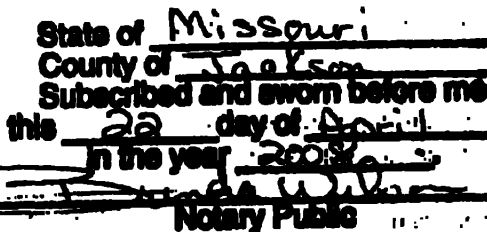 State of Missouri
County of Jackson
Subscribed and sworn before me
this 22 day of April
in the year 2008
Notary Public